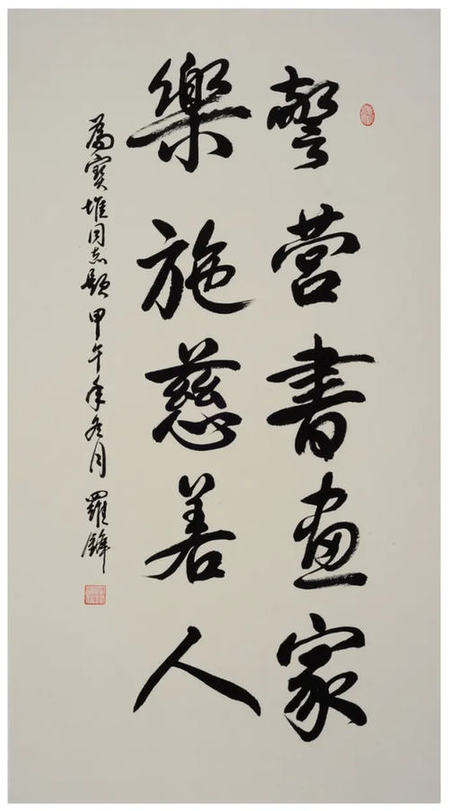 警營書畫家
樂施慈善人
為寶堆同志題甲午年冬月羅鋒